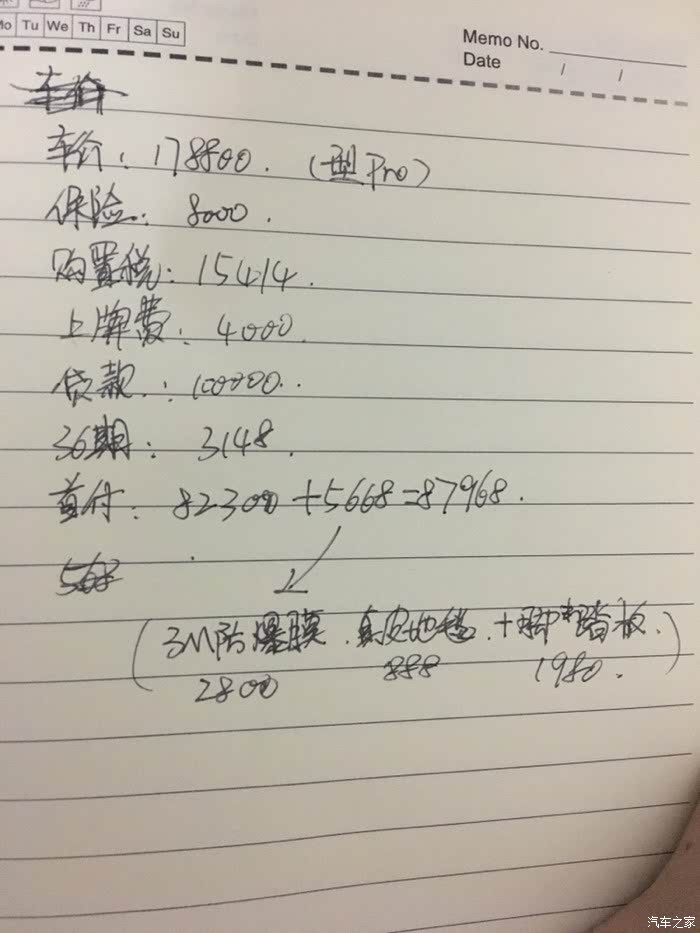 Mo Tu We Th Fr Sa Su
Memo No.
Date / /
车价
车价: 178800. (型Pro)
保险: 8000.
购置税: 15414.
上牌费: 4000.
贷款: 100000.
36期: 3148.
首付: 82300+5668=87968.
568
(3M防爆膜.真皮地毯.+脚踏板.)
2800 888 1980.
汽车之家